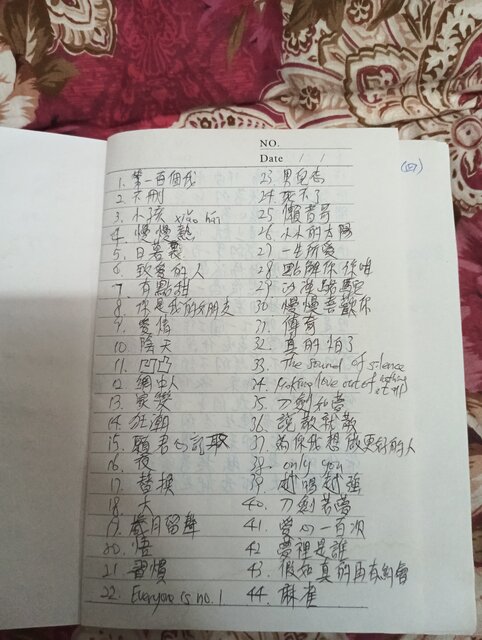 NO.
Date / /
(四)
1. 第一百個我
2. 不刪
3. 小孩 xiǎo hái
4. 慢慢熟
5. 日暮裏
6. 致愛的人
7. 有點甜
8. 你是我的女朋友
9. 愛情
10. 陰天
11. 凹凸
12. 網中人
13. 家變
14. 狂潮
15. 願君心記取
16. 夜
17. 替換
18. 大
19. 歲月留聲
20. 悟
21. 習慣
22. Everyone is no. 1
23. 男兒志
24. 死不了
25. 懶書哥
26. 小小的太陽
27. 一生所愛
28. 點解你
29. 沙漠駱駝
30. 慢慢喜歡你
31. 傳奇
32. 真的怕了
33. The sound of silence
34. Making love out of nothing at all
35. 刀劍如夢
36. 說散就散
37. 為你我想做更好的人
38. only you
39. 越唱越強
40. 刀劍若夢
41. 愛心一百次
42. 夢裡是誰
43. 假如真的再有約會
44. 麻雀